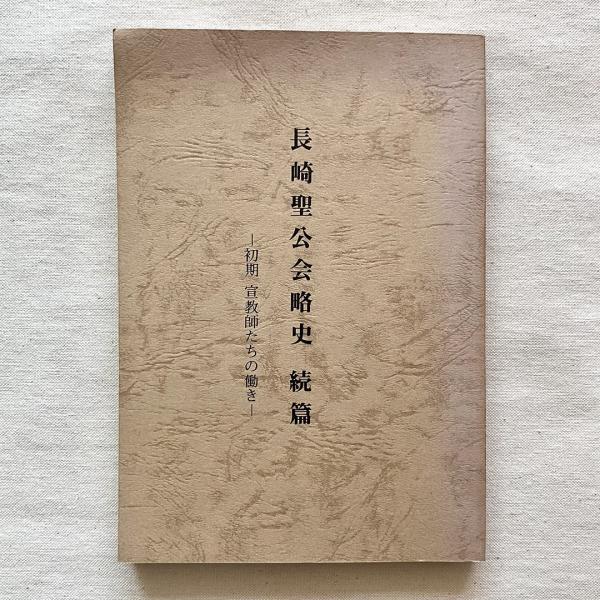 長崎聖公会略史 続篇
―初期 宣教師たちの働き―